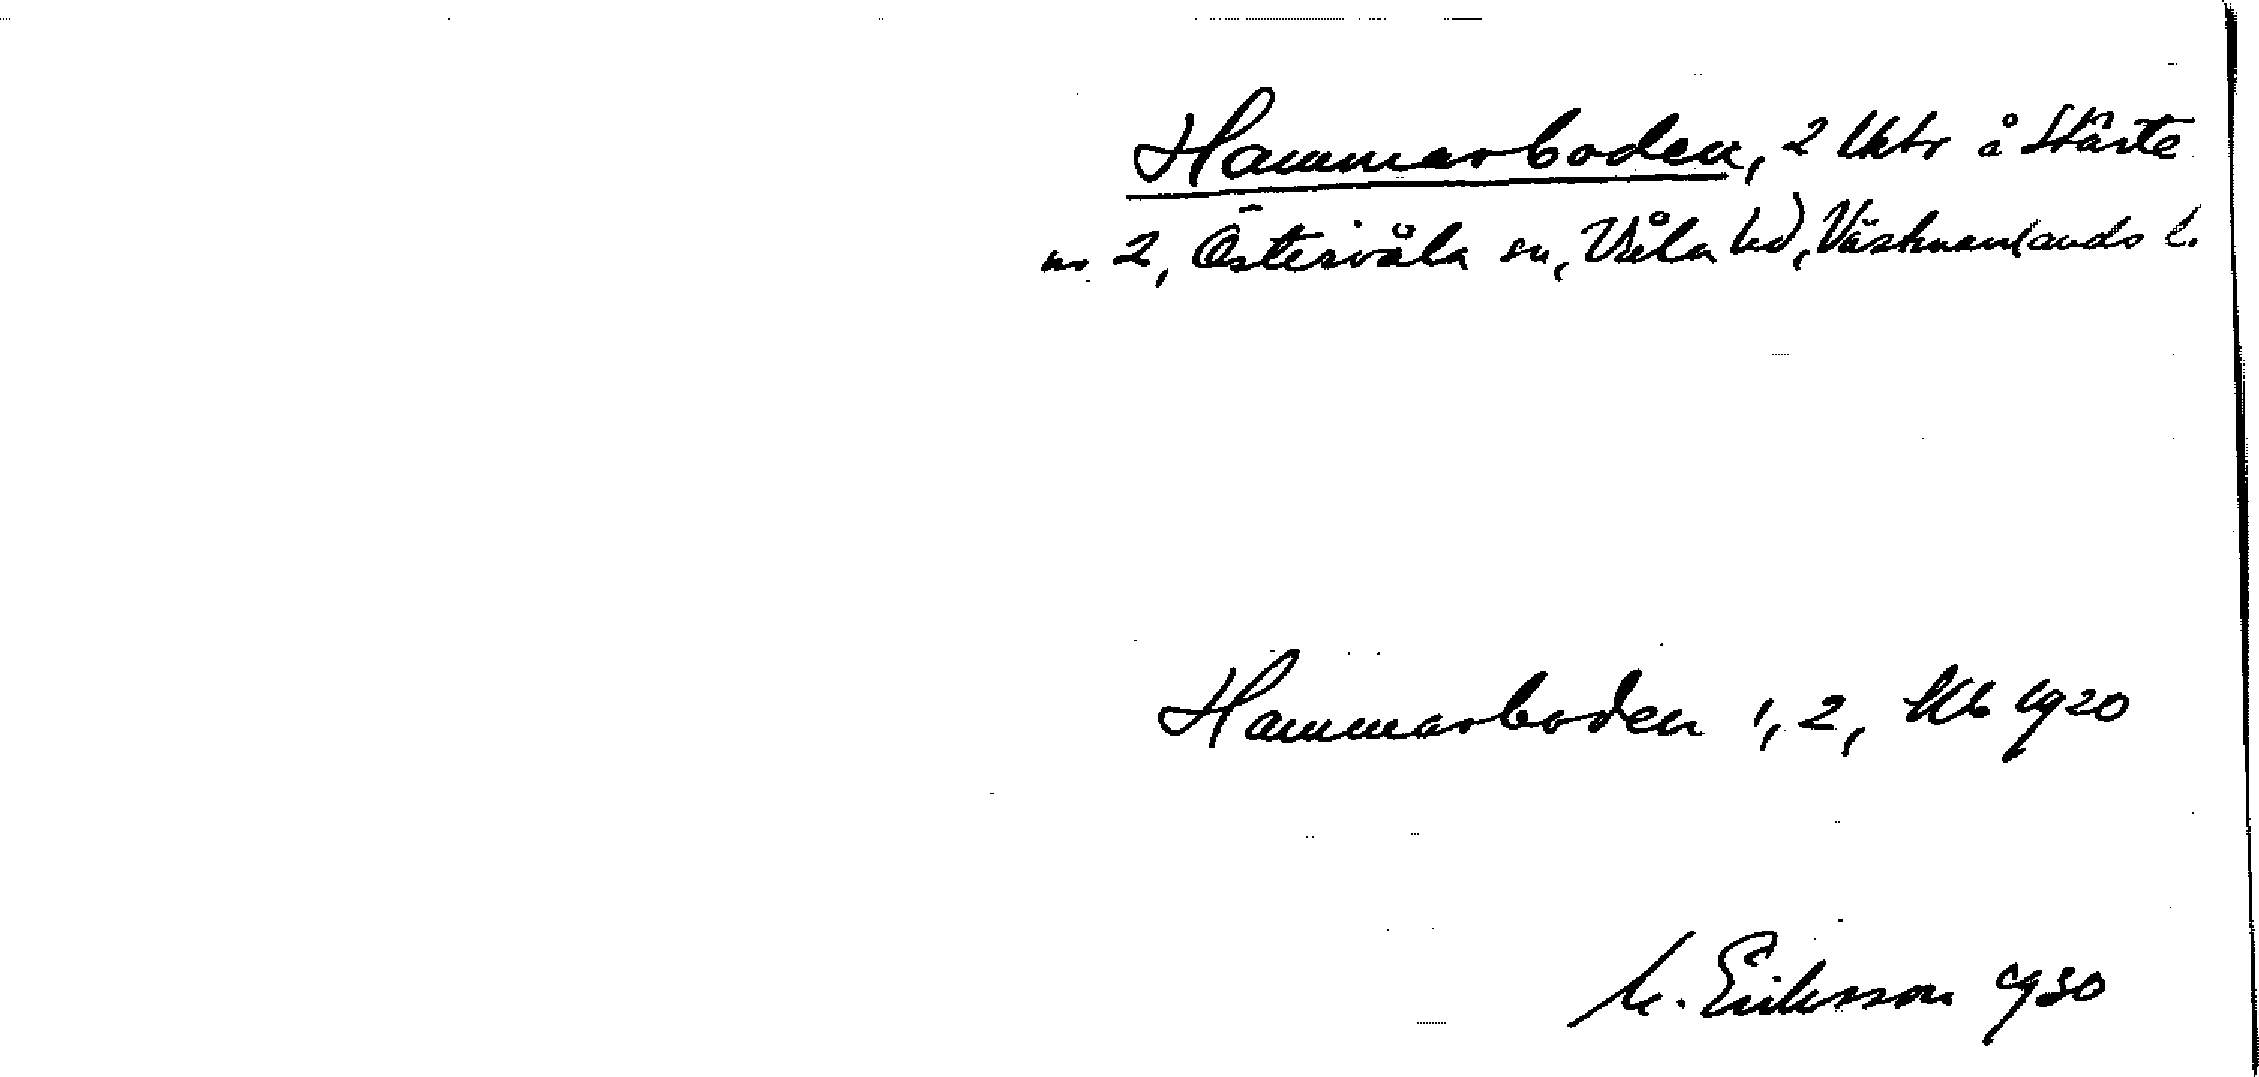 Hammarboden, 2 lhtr å Stärte
nr 2, Östervåla sn, Våla hd, Västmanlands l.
Hammarboden 1, 2, Kb 1920
M. Eriksson 1930